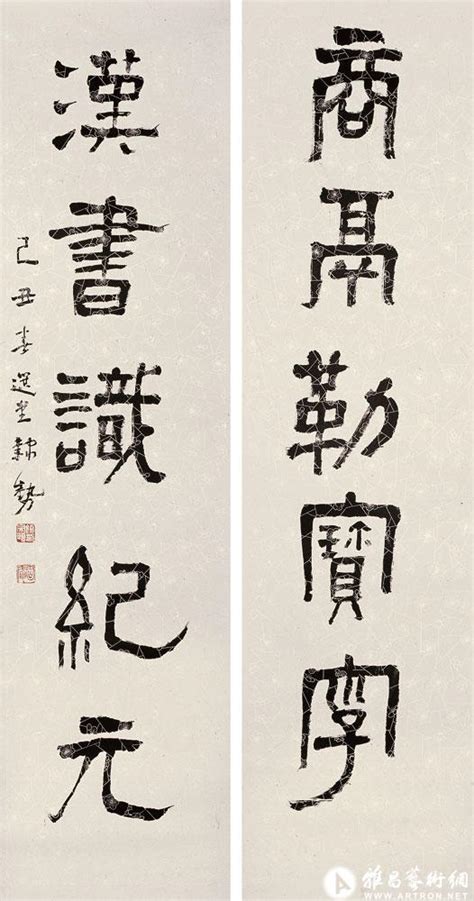 商鬲勒寶字
漢書識紀元
己丑春選堂隸勢
雅昌藝術網
WWW.ARTRON.NET